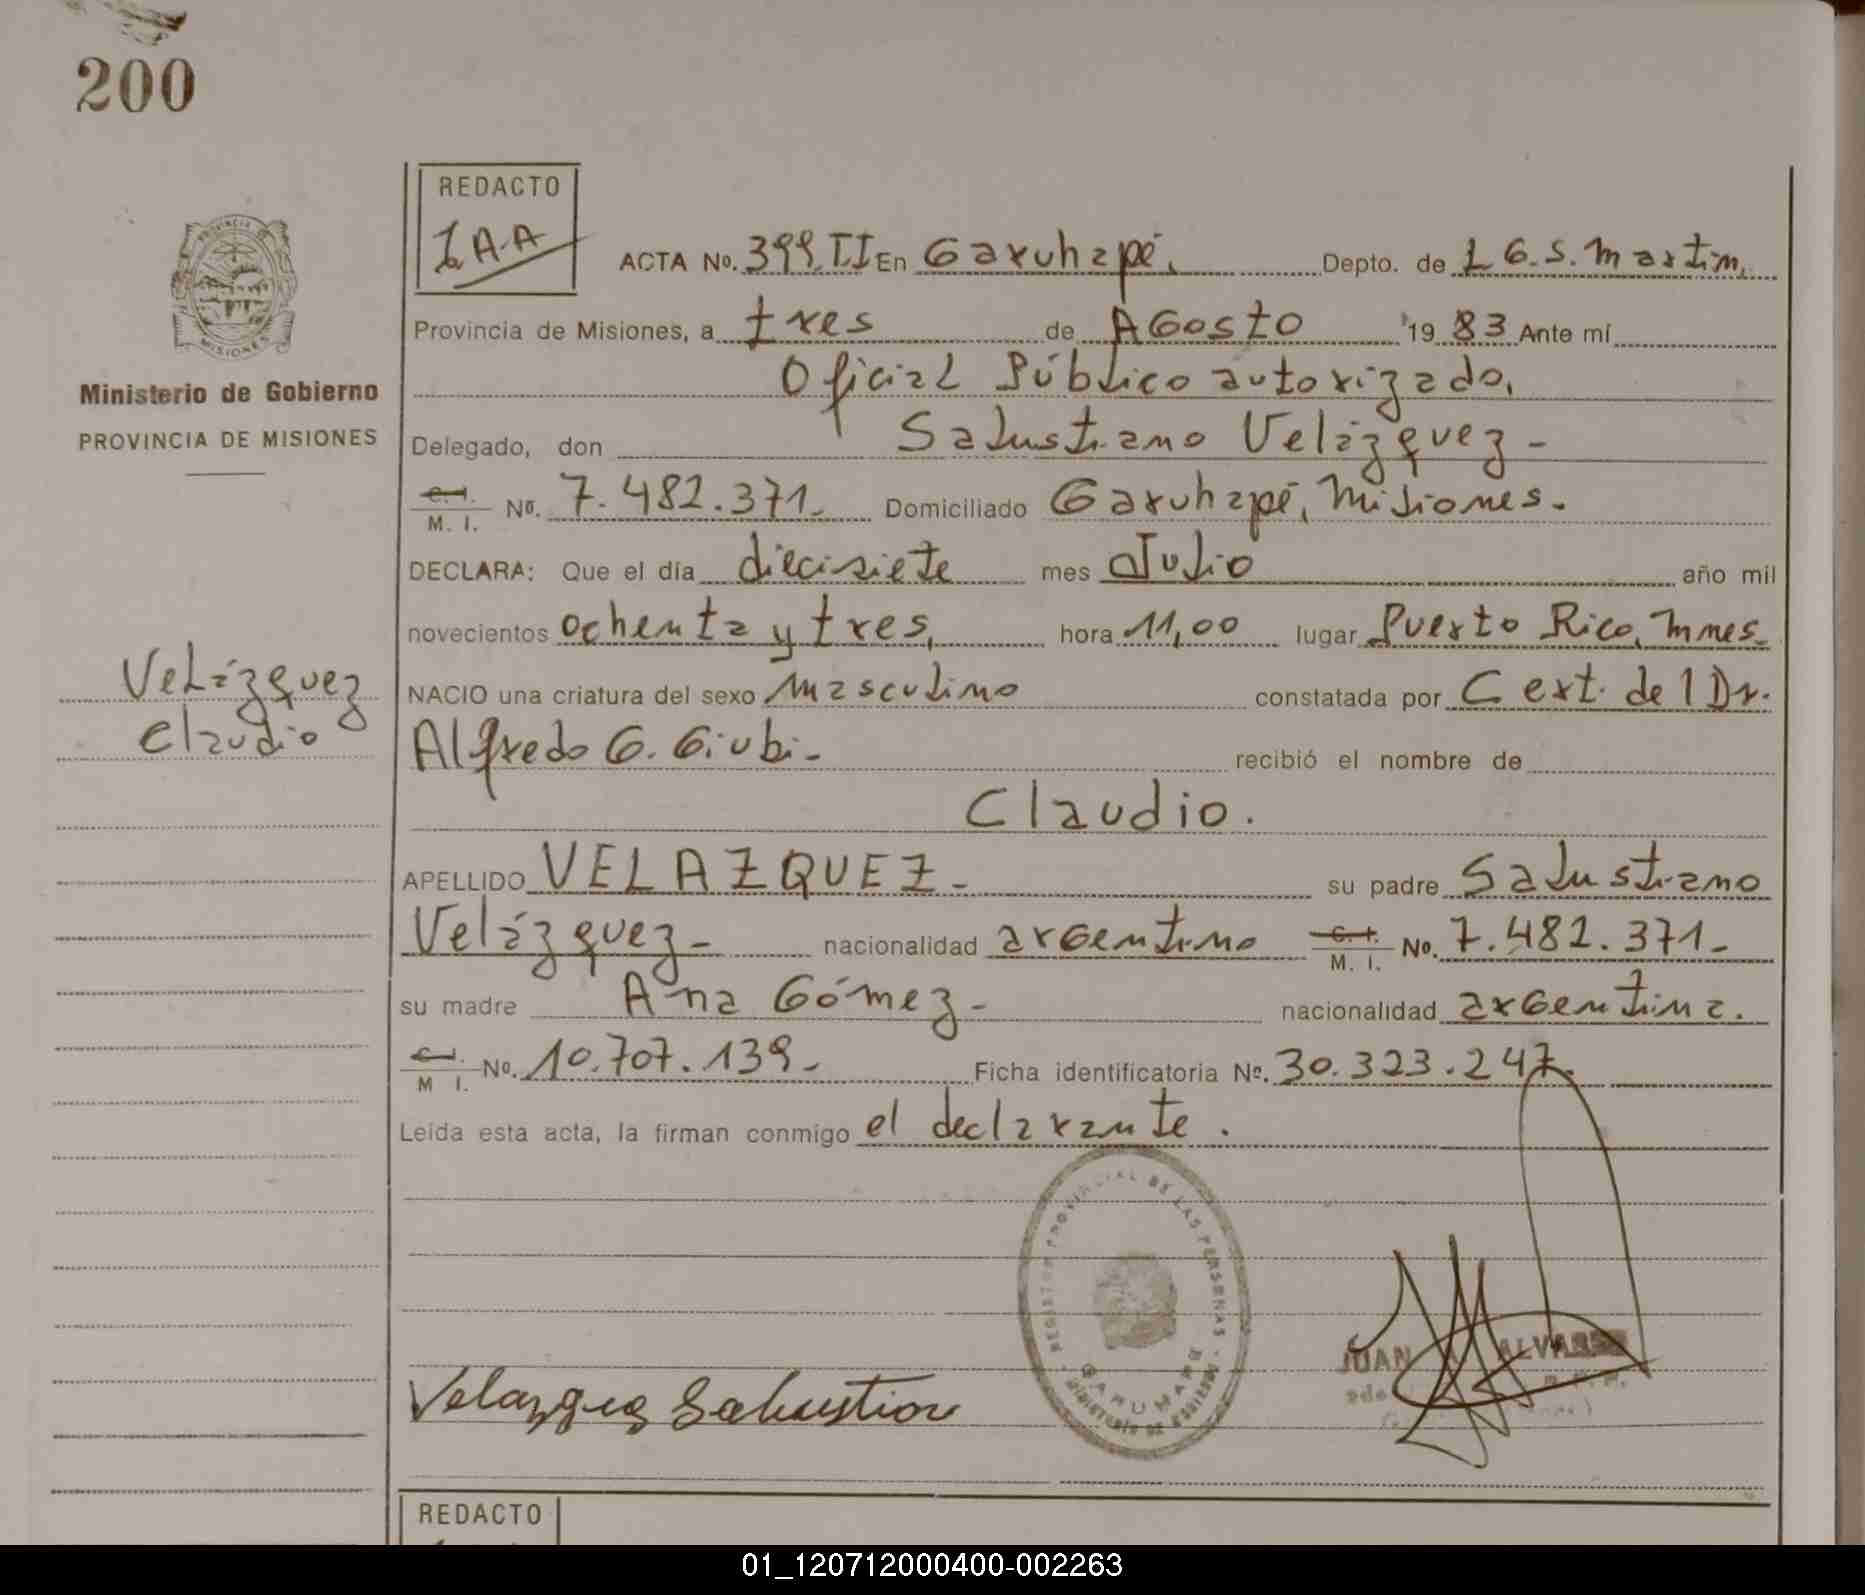 200
REDACTO
PROVINCIA DE
MISIONES
Ministerio de Gobierno
PROVINCIA DE MISIONES
Velázquez
Claudio
ACTA No. 399, II En Garuhapé, Depto. de L G. S. Martin,
Provincia de Misiones, a tres de Agosto 19 83 Ante mí
Oficial Público autorizado,
Delegado, don Salustiano Velázquez -
C. I. / M. I. No. 7.482.371.- Domiciliado Garuhapé, Misiones.
DECLARA: Que el día diecisiete mes Julio año mil
novecientos ochenta y tres, hora 11,00 lugar Puerto Rico, Mnes.
NACIO una criatura del sexo masculino constatada por C ext. del Dr.
Alfredo G. Giubi - recibió el nombre de
Claudio.
APELLIDO VELAZQUEZ - su padre Salustiano
Velázquez - nacionalidad argentino C. I. / M. I. No. 7.482.371.-
su madre Ana Gómez - nacionalidad argentina.
C. I. / M I. No. 10.707.139 - Ficha identificatoria No. 30.323.247.
Leída esta acta, la firman conmigo el declarante.
REGISTRO PROVINCIAL DE LAS PERSONAS
Velazquez Salustian
JUAN ALVAREZ
REDACTO
01_120712000400-002263